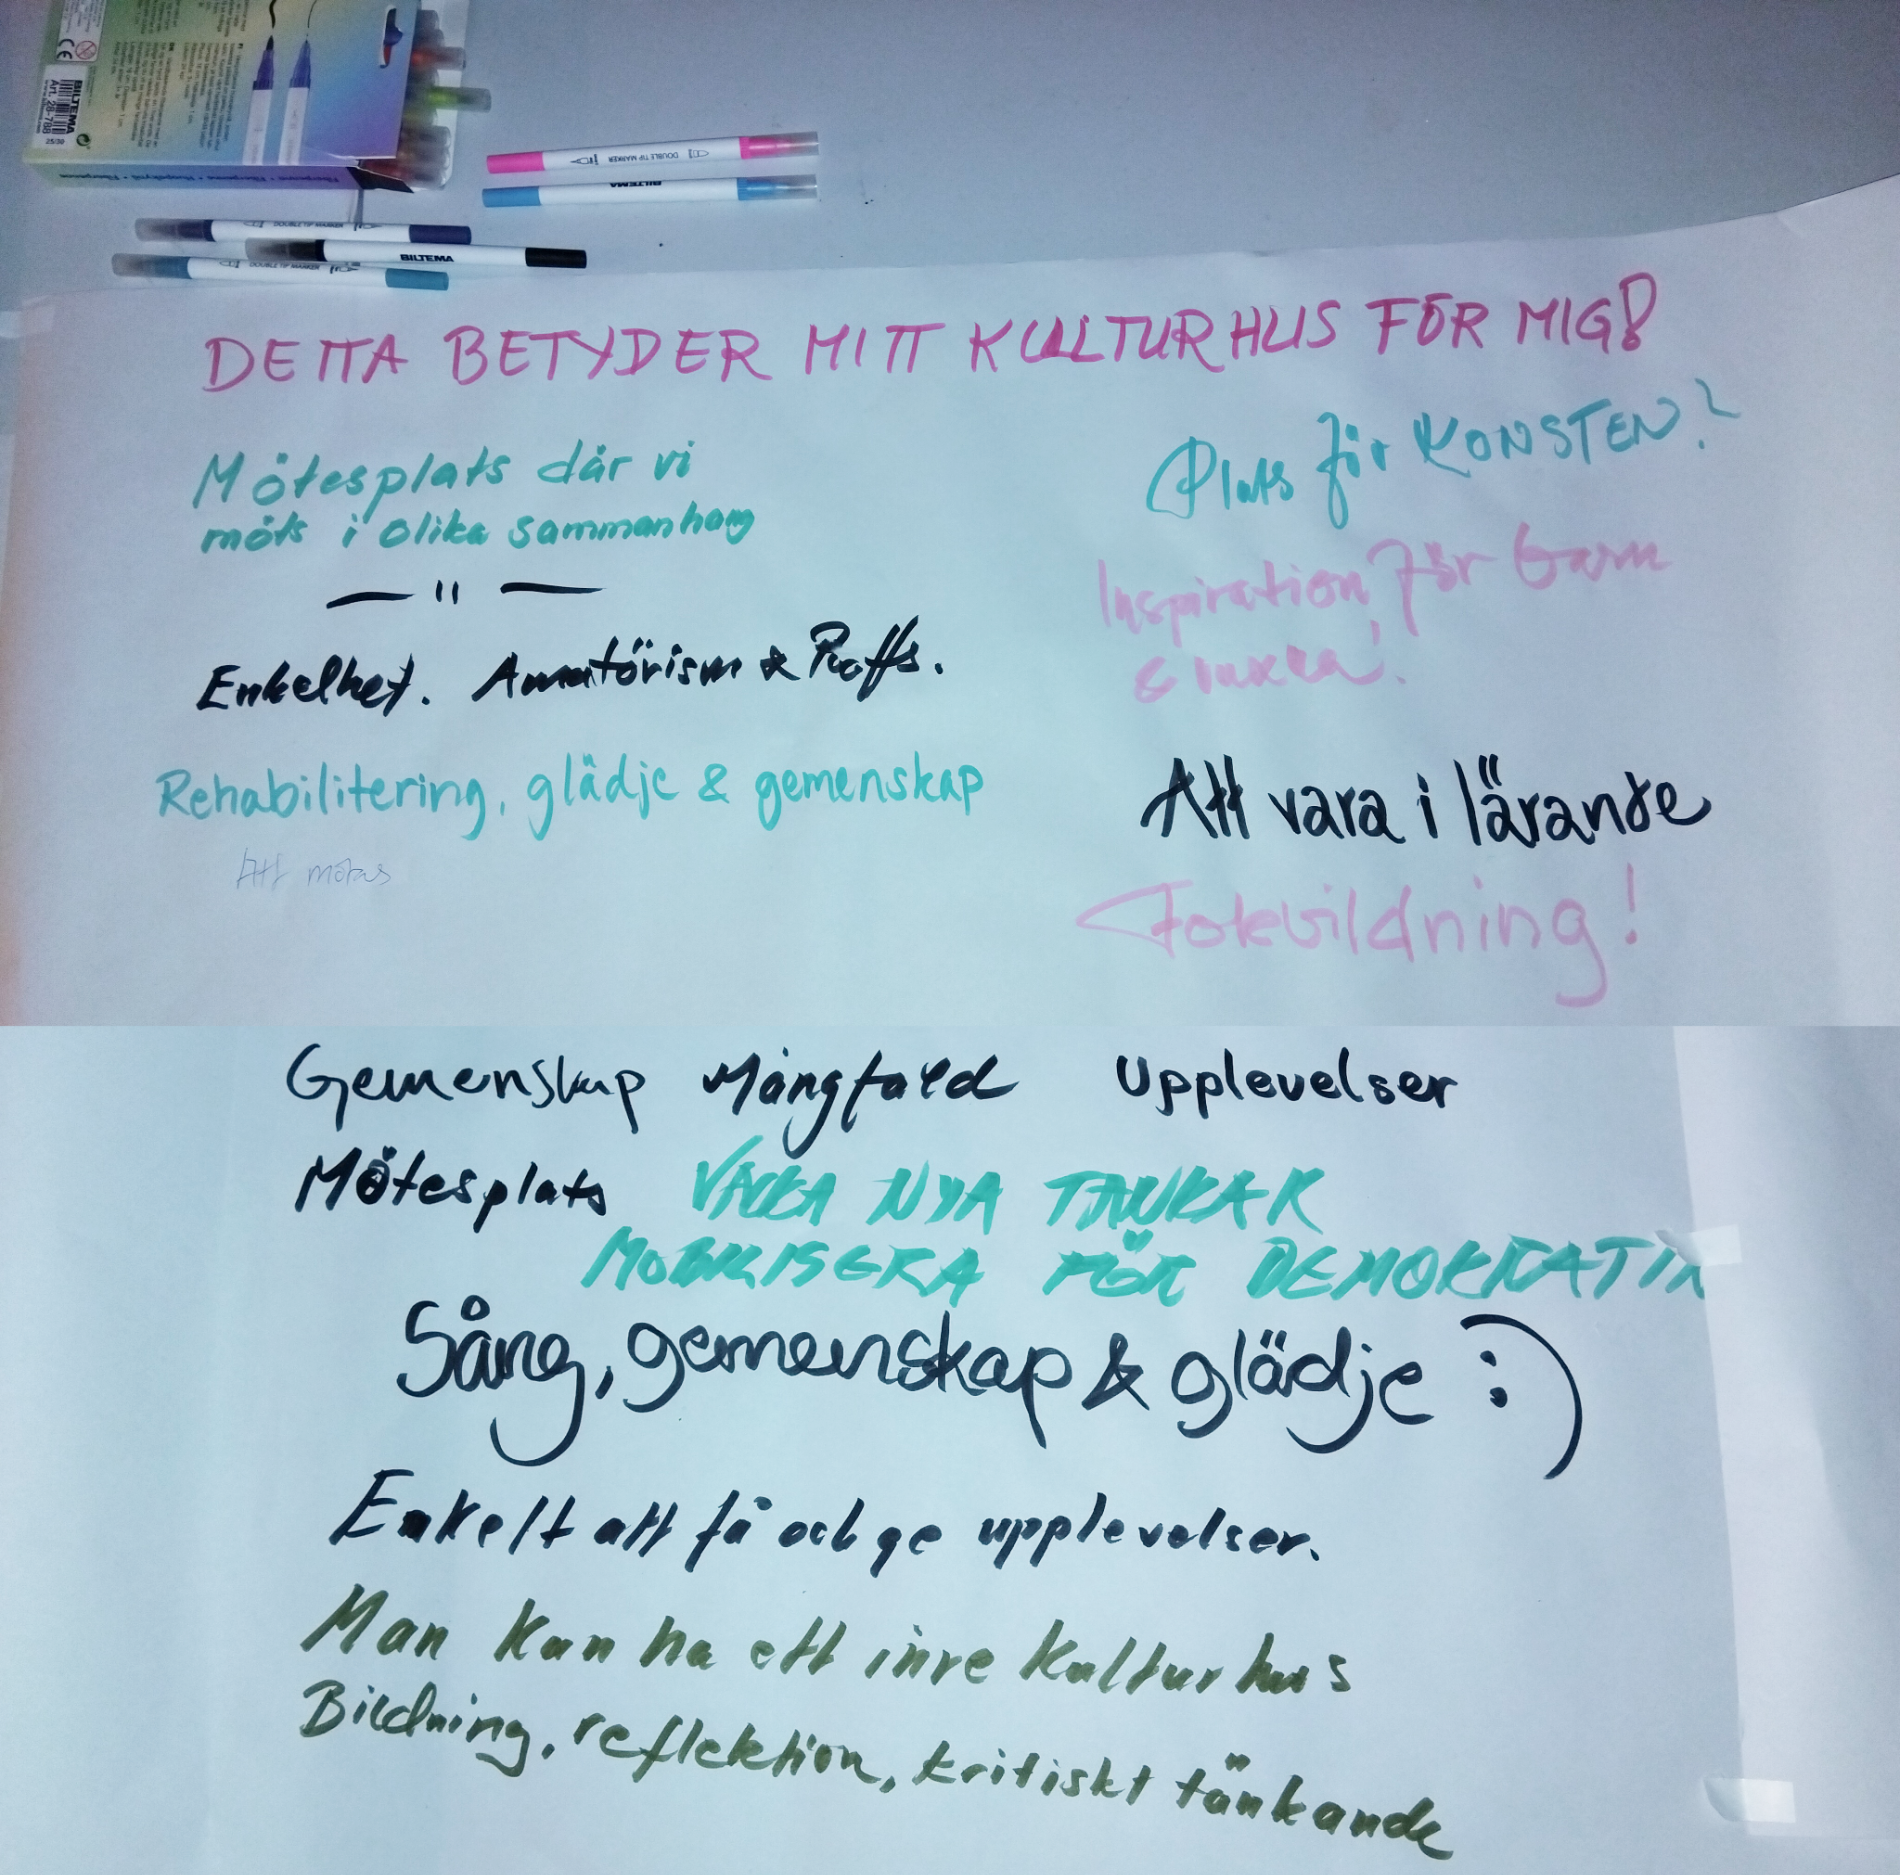 BILTEMA
Art. 28-788
25/30
CE
Fiberpenna • Fiberpenna •
DOUBLE TIP MARKER
BILTEMA
DOUBLE TIP MARKER
BILTEMA
DOUBLE TIP MARKER
DETTA BETYDER MITT KULTURHUS FÖR MIG?
Mötesplats där vi
möts i olika sammanhang
— " —
Enkelhet. Amatörism & Proffs.
Rehabilitering, glädje & gemenskap
Att mötas
Plats för KONSTEN?
Inspiration för barn
& vuxna!
Att vara i lärande
Folkbildning!
Gemenskap Mångfald Upplevelser
Mötesplats VÄCKA NYA TANKAR
MOBILISERA FÖR DEMOKRATIN
Sång, gemenskap & glädje :)
Enkelt att få och ge upplevelser.
Man kan ha ett inre kulturhus
Bildning, reflektion, kritiskt tänkande